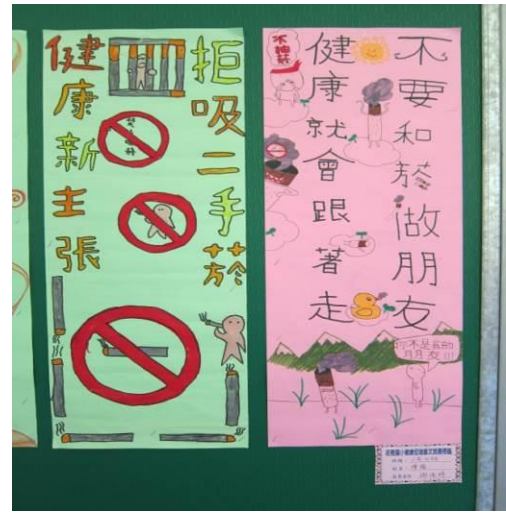 拒吸二手菸
健康新主張
不要和菸做朋友
健康就會跟著走
不抽菸
你不是我的
朋友!!!